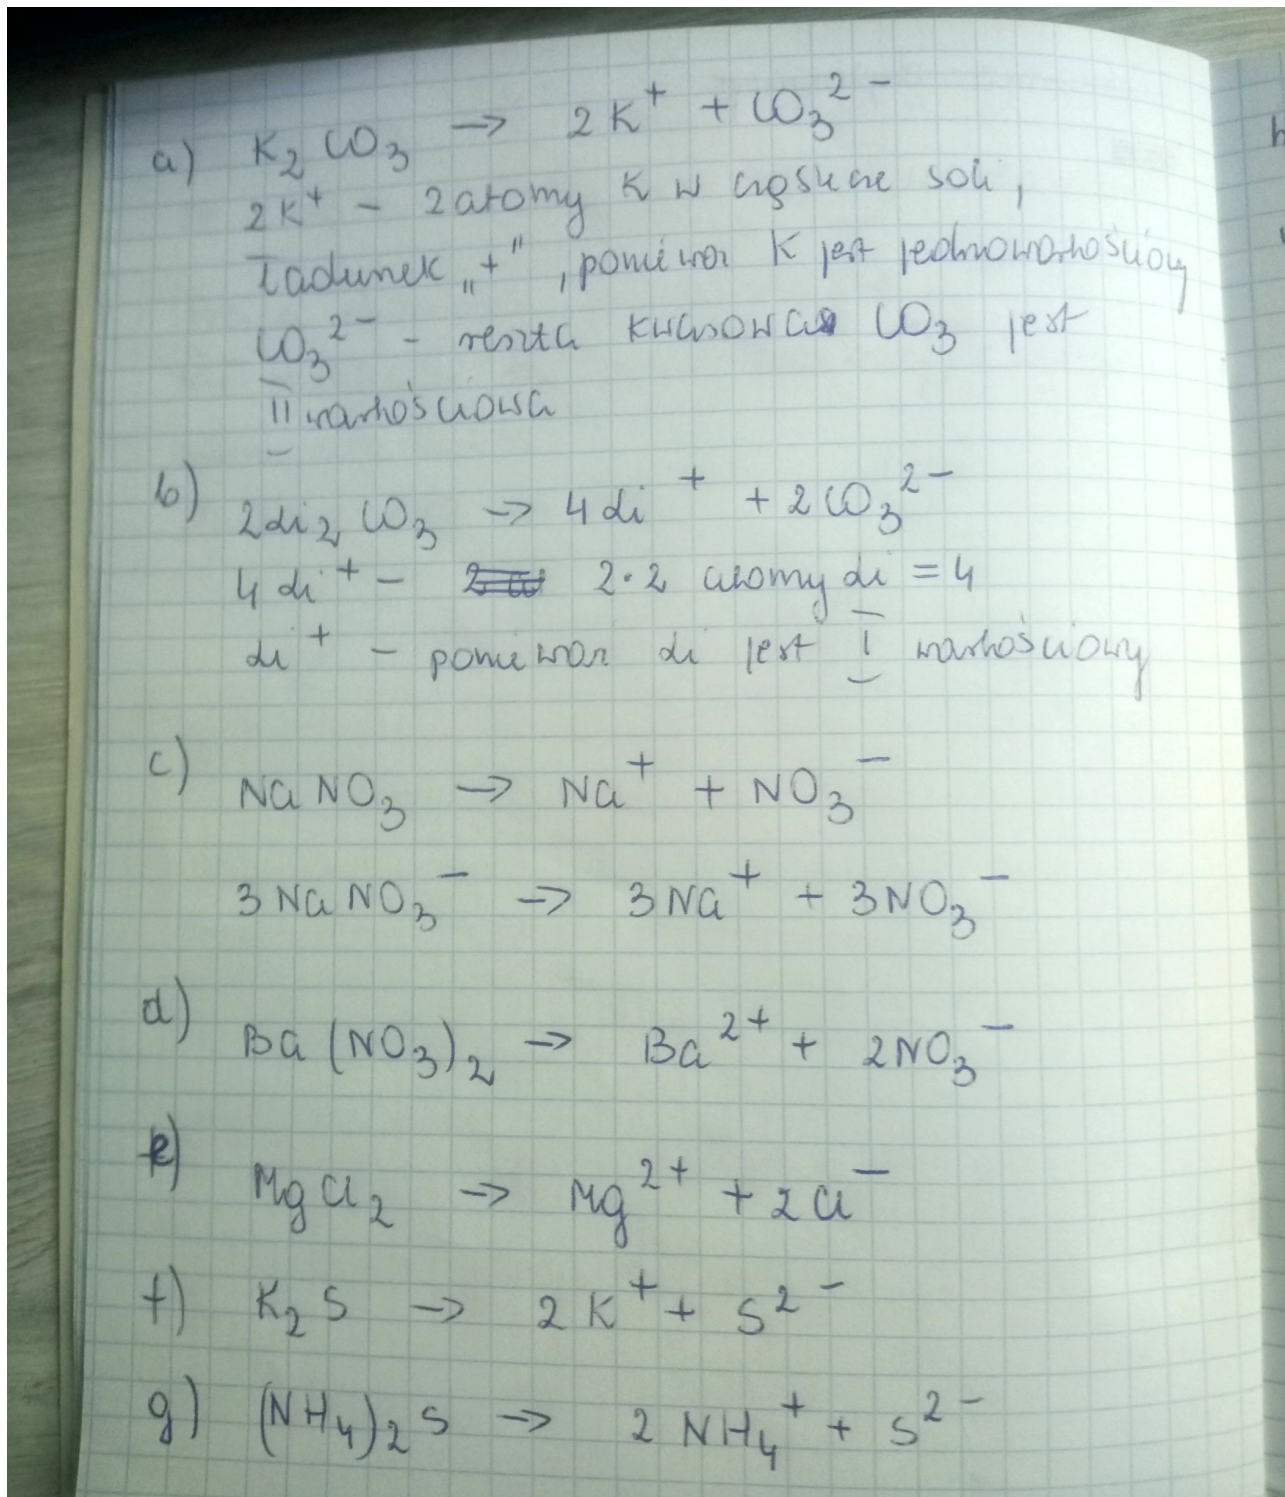 a) K₂CO₃ → 2K⁺ + CO₃²⁻
2K⁺ - 2 atomy K w cząstce soli,
ładunek „+”, ponieważ K jest jednowartościowy
CO₃²⁻ - reszta kwasowa CO₃ jest
II wartościowa
b) 2Li₂CO₃ → 4Li⁺ + 2CO₃²⁻
4Li⁺ - 2·2 atomy Li = 4
Li⁺ - ponieważ Li jest I wartościowy
c) NaNO₃ → Na⁺ + NO₃⁻
3NaNO₃⁻ → 3Na⁺ + 3NO₃⁻
d) Ba(NO₃)₂ → Ba²⁺ + 2NO₃⁻
e) MgCl₂ → Mg²⁺ + 2Cl⁻
f) K₂S → 2K⁺ + S²⁻
g) (NH₄)₂S → 2NH₄⁺ + S²⁻